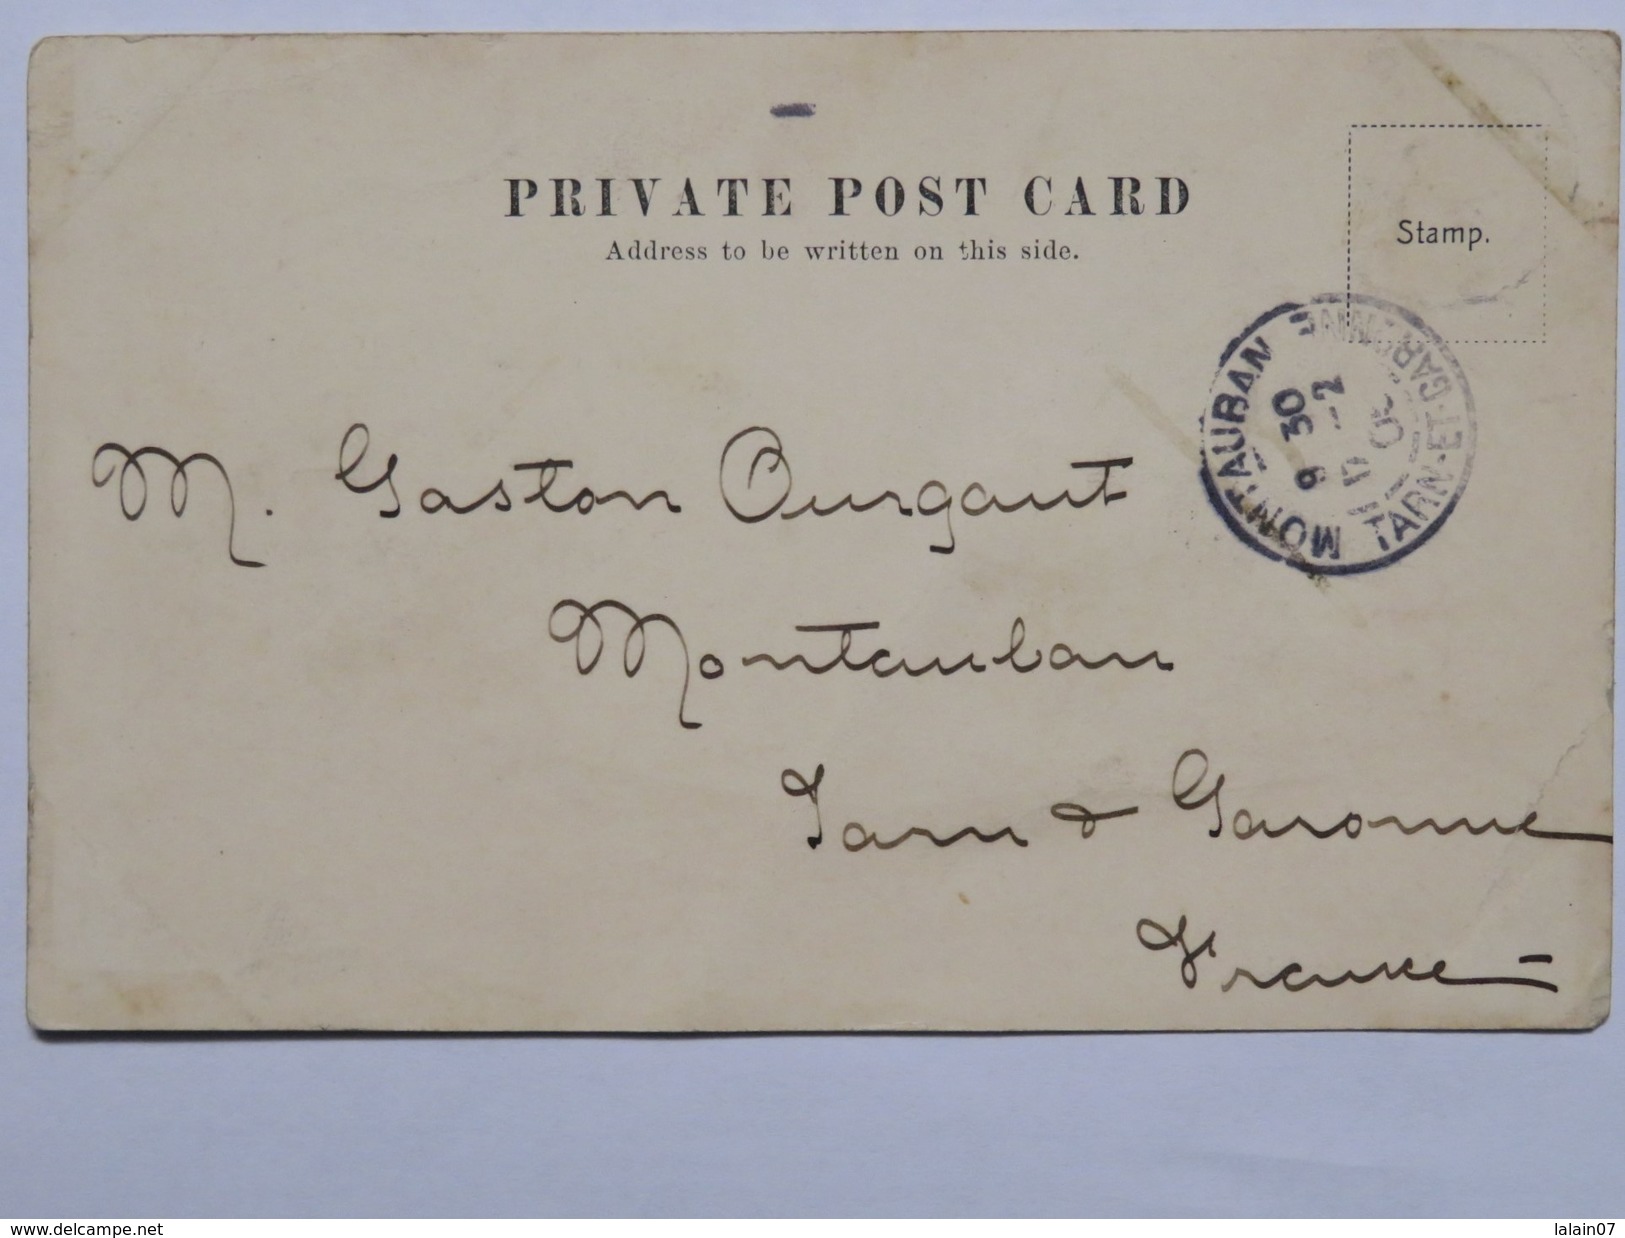 PRIVATE POST CARD
Address to be written on this side.
Stamp.
MONTAUBAN
TARN-ET-GARONNE
9 30
M. Gaston Ourgaut
Montauban
Tarn & Garonne
France
www.delcampe.net
lalain07